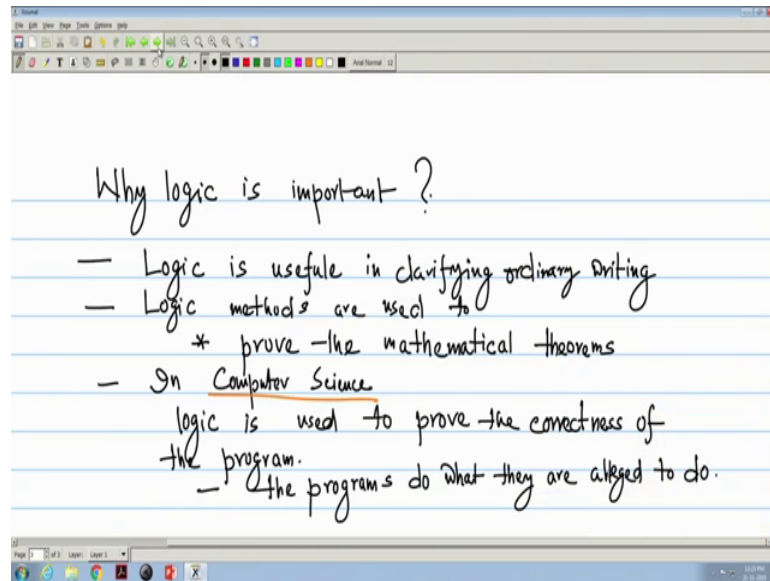 Journal
File Edit View Page Tools Options Help
Arial Normal 12
Why logic is important ?
— Logic is usefule in clarifying ordinary writing
— Logic methods are used to
* prove the mathematical theorems
— In Computer Science
logic is used to prove the correctness of
the program.
— the programs do what they are alleged to do.
Page 3 of 3 Layer: Layer 1